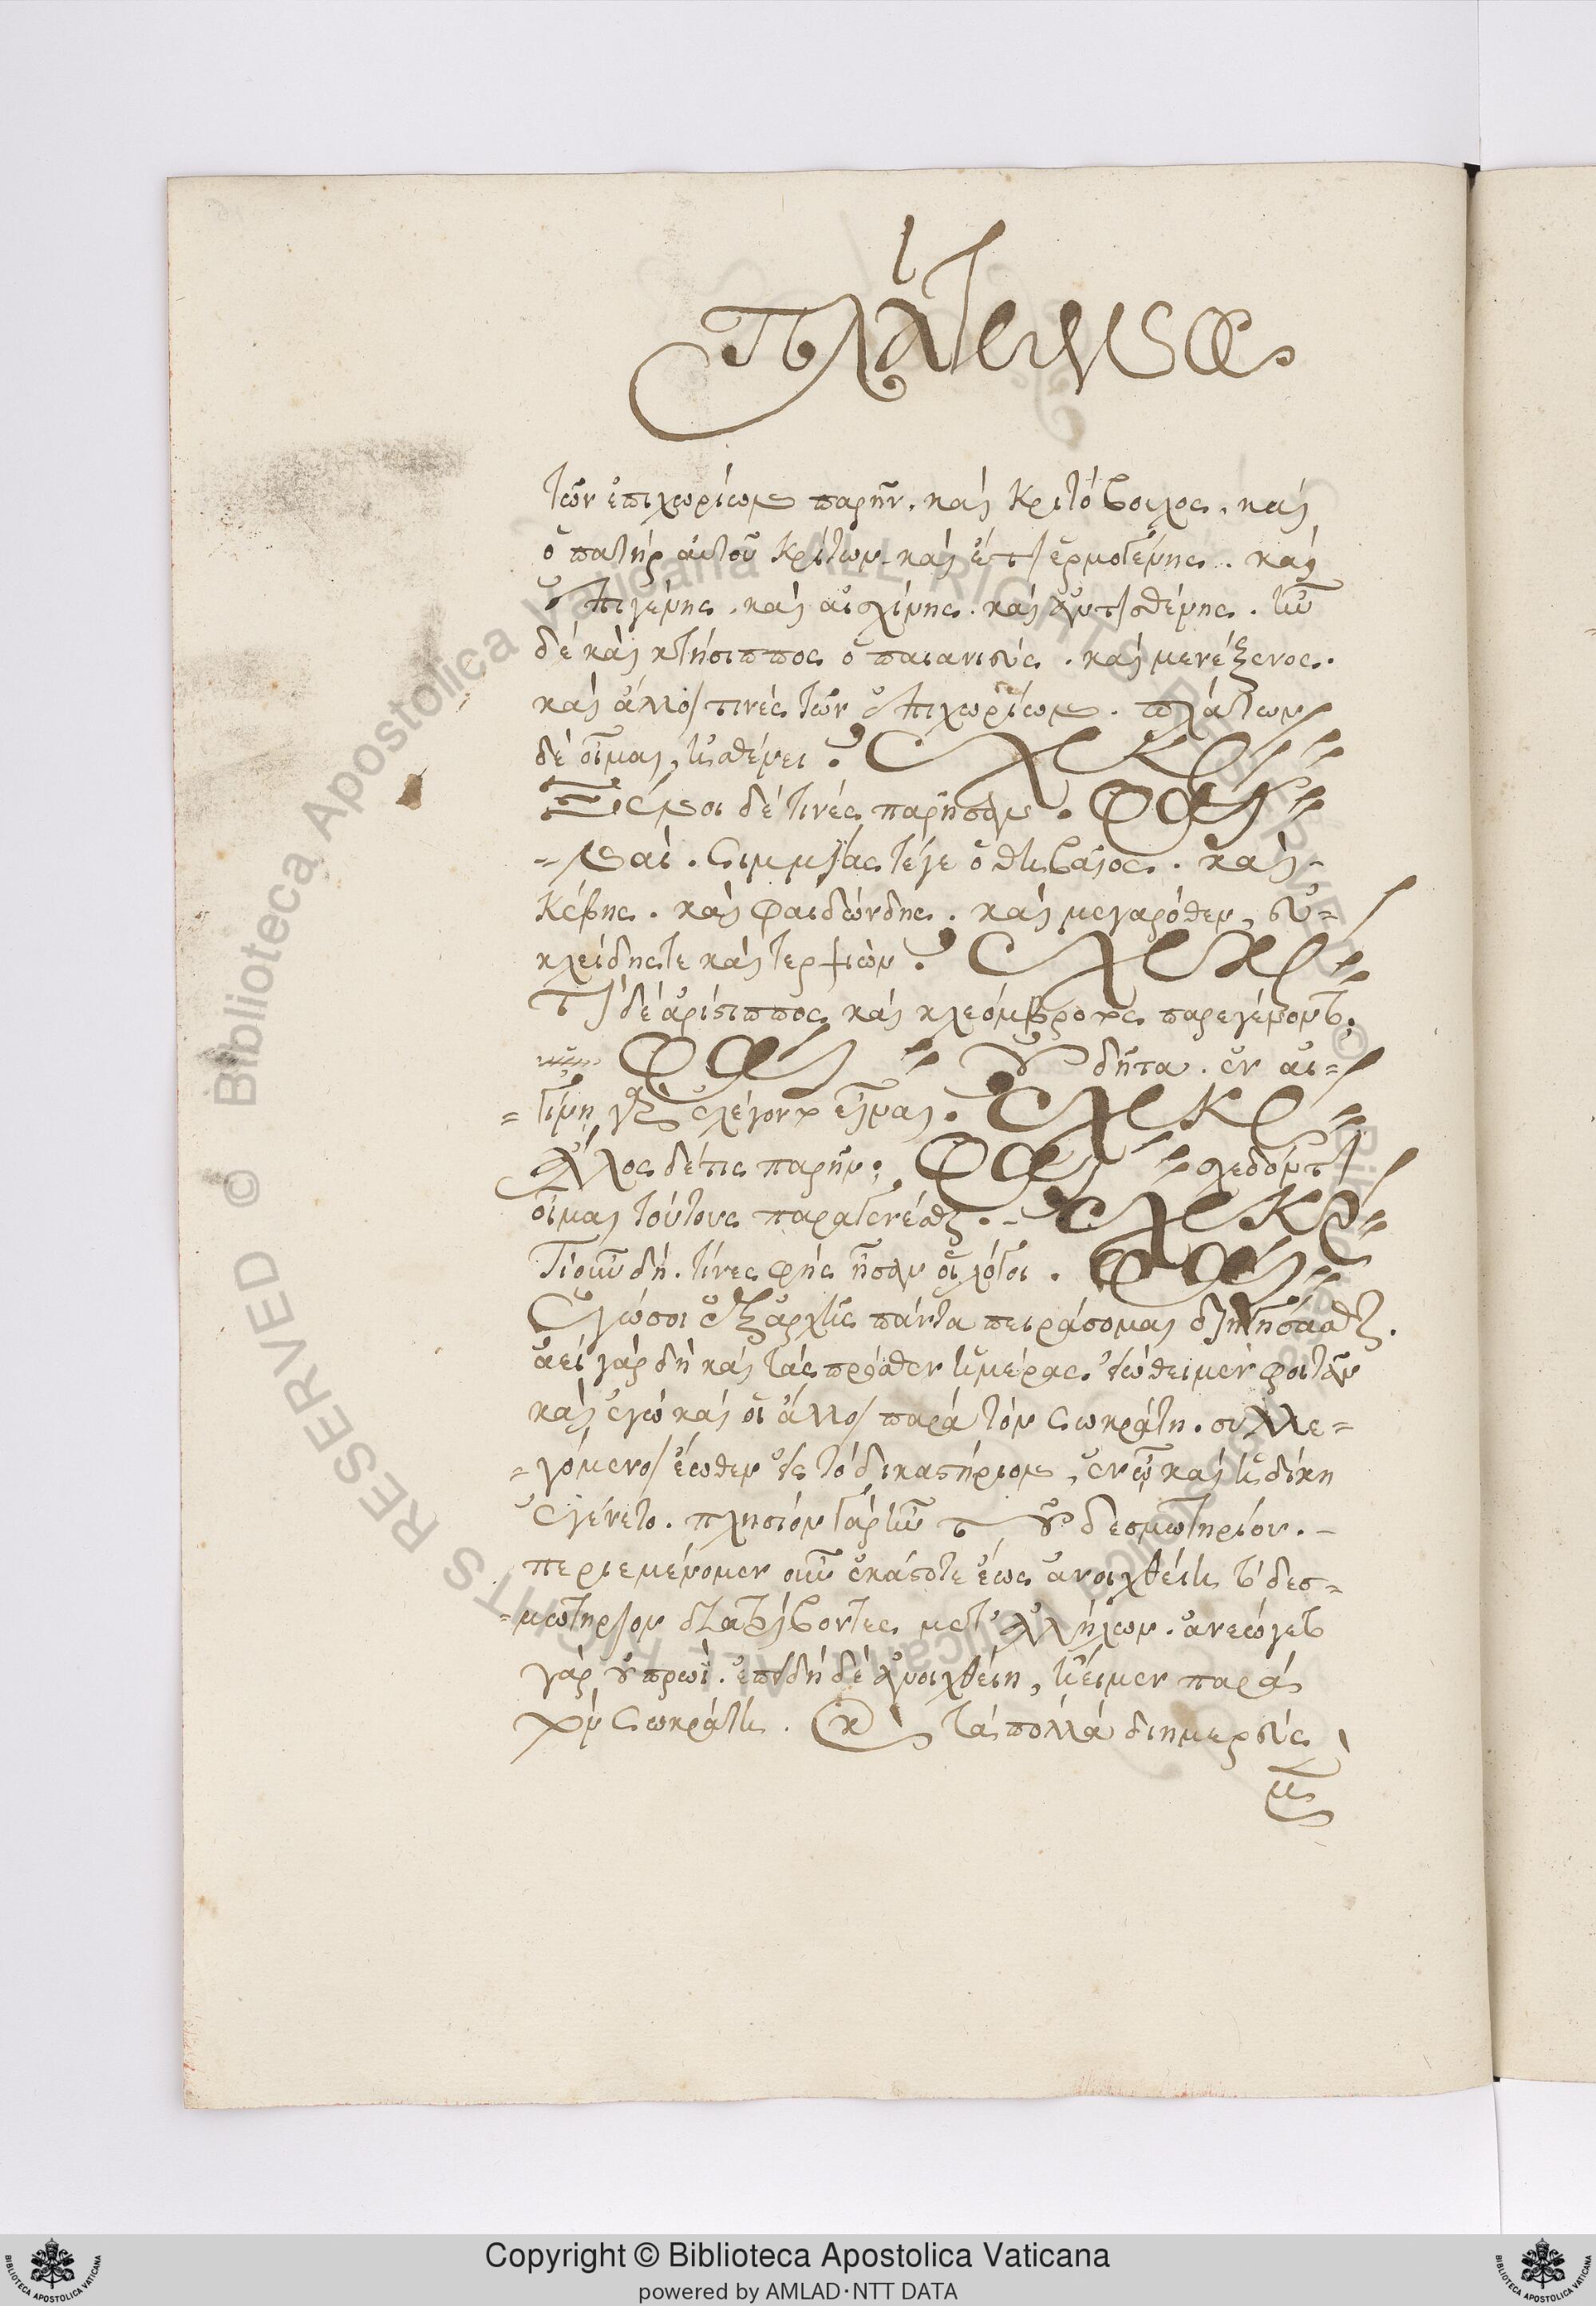 πλάτωνος
τῶν ἐπιχωρίων παρῆν. καὶ κριτόβουλος. καὶ
ὁ πατήρ αὐτοῦ κρίτων. καὶ ἔτι ἑρμογένης. καὶ
ἐπιγένης. καὶ αἰσχίνης. καὶ ἀντισθένης. ἦν
δὲ καὶ κτήσιππος ὁ παιανιεύς. καὶ μενέξενος.
καὶ ἄλλοι τινὲς τῶν ἐπιχωρίων. πλάτων
δὲ οἶμαι, ἠσθένει. ΕΧΕΚΡ
Ξένοι δέ τινές παρῆσαν. ΦΑΙ
ναὶ. σιμμίας τέγε ὁ θηβαῖος. καὶ
κέβης. καὶ φαιδώνδης. καὶ μεγαρόθεν, εὐ=
κλείδης τε καὶ τερψιών. ΕΧΕΚΡ
τί δέ ἀρίστιππος καὶ κλεόμβροτος παρεγένοντο;
ΦΑΙ οὐ δῆτα. ἐν αἰ=
=γίνῃ γὰρ ἐλέγοντο εἶναι. ΕΧΕΚΡ
ἄλλος δέ τις παρῆν; ΦΑΙ σχεδόν τι
οἶμαι τούτους παραγενέσθαι. ΕΧΕΚΡ
Τί οὖν δή. τίνες φῂς ἦσαν οἱ λόγοι. ΦΑΙ
Ἐγώ σοι ἐξ ἀρχῆς πάντα πειράσομαι διηγήσασθαι.
ἀεὶ γὰρ δὴ καὶ τὰς πρόσθεν ἡμέρας εἰώθειμεν φοιτᾶν
καὶ ἐγὼ καὶ οἱ ἄλλοι παρὰ τὸν σωκράτη. συλλε=
=γόμενοι ἕωθεν εἰς τὸ δικαστήριον, ἐν ᾧ καὶ ἡ δίκη
ἐγένετο. πλησίον γὰρ ἦν τοῦ δεσμωτηρίου.
περιεμένομεν οὖν ἑκάστοτε ἕως ἀνοιχθείη τὸ δεσ=
=μωτήριον διατρίβοντες μετ' ἀλλήλων. ἀνεῴγετο
γὰρ οὐ πρωί. ἐπειδὴ δὲ ἀνοιχθείη, ᾔειμεν παρὰ
τὸν σωκράτη. καὶ τὰ πολλὰ διημερεύ=